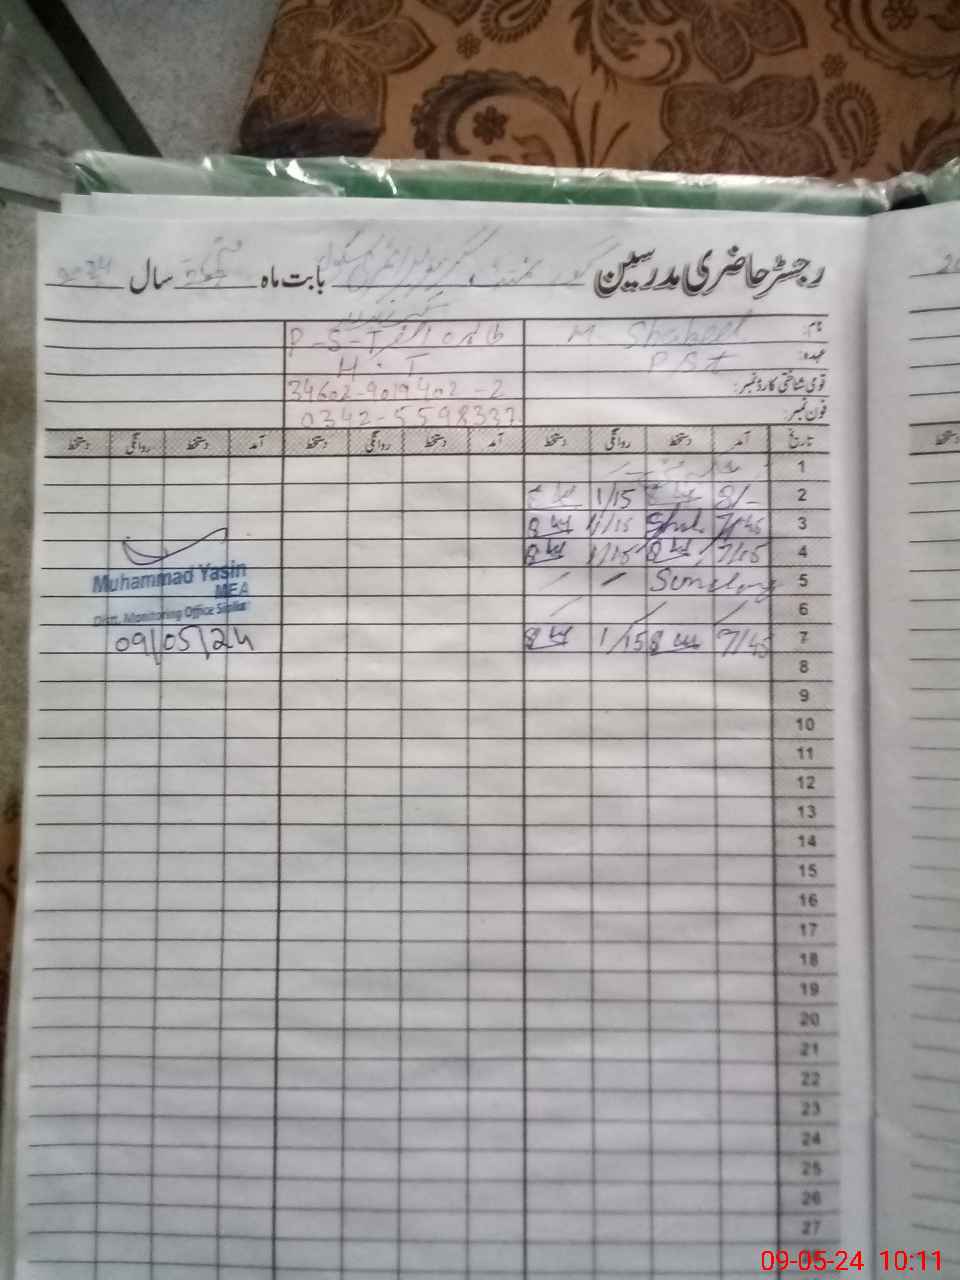 رجسٹر حاضری مدرسین گورنمنٹ بابت ماہ مئی سال 2024
نام: M Shakeel
P-S-T
عہدہ: PST
H.T
قومی شناختی کارڈ نمبر: 34602-9019402-2
فون نمبر: 0342-5598337
تاریخ آمد دستخط روانگی دستخط آمد دستخط روانگی دستخط آمد دستخط روانگی دستخط
1
2 8/- 1/15
3 7/45 1/15
4 7/45 1/15
5 Sunday
6
7 7/45 1/15
8
9
10
11
12
13
14
15
16
17
18
19
20
21
22
23
24
25
26
27
Muhammad Yasin
MEA
Distt. Monitoring Office Sialkot
09/05/24
09-05-24 10:11